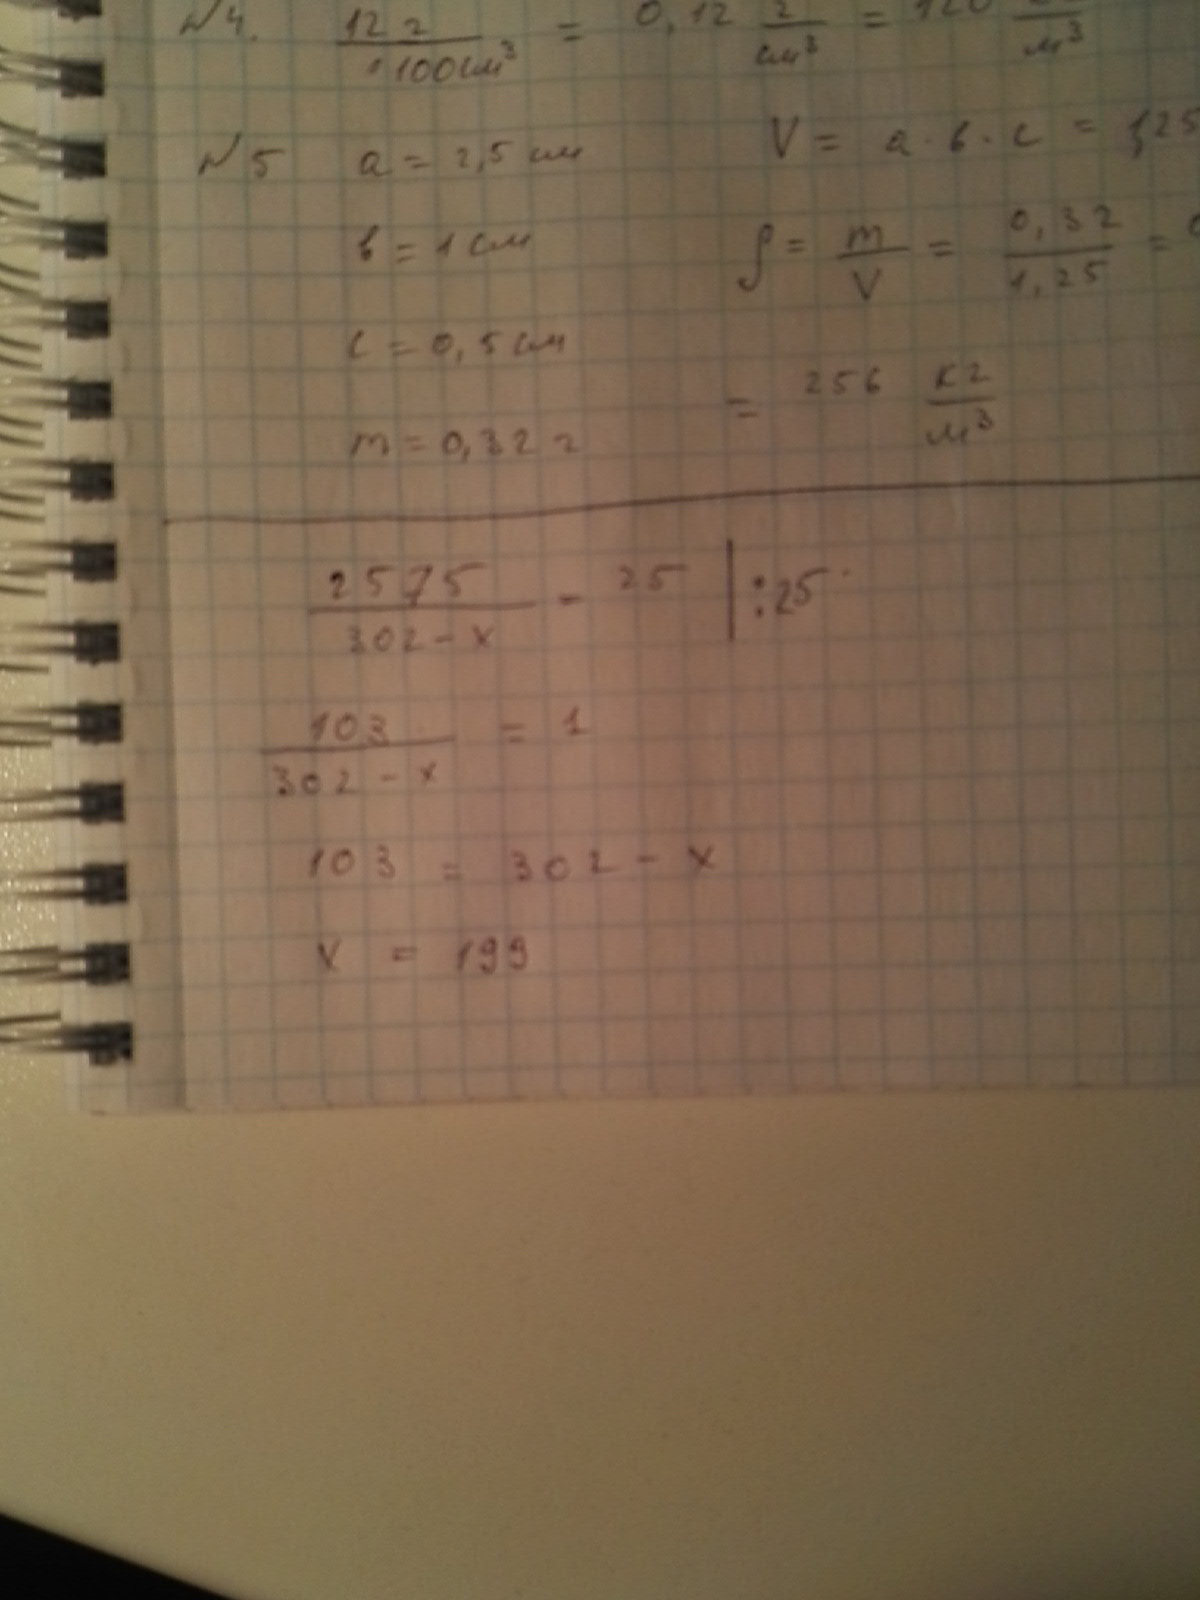 №4. 12 г / 100 см³ = 0,12 г/см³ = 120 /м³
№5 a = 2,5 см V = a · b · c = 1,25
b = 1 см ρ = m/V = 0,32/1,25 = 0
c = 0,5 см
= 256 кг/м³
m = 0,32 г
2575/(302 - x) = 25 | :25
103/(302 - x) = 1
103 = 302 - x
x = 199